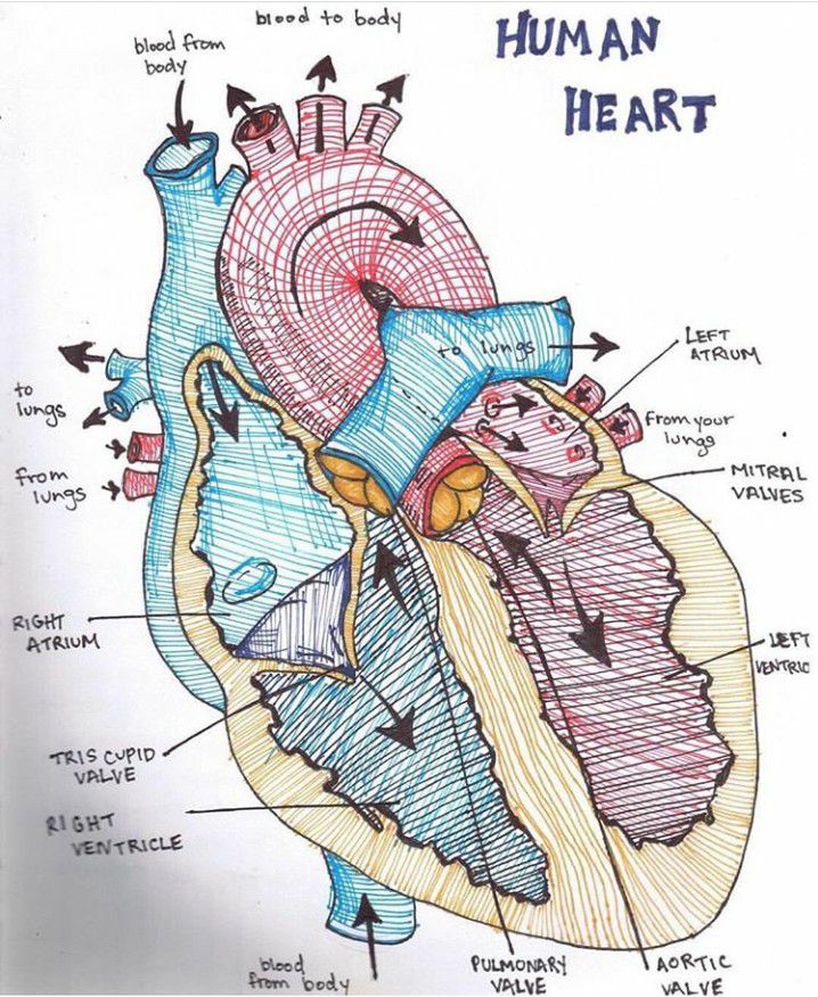 blood to body
HUMAN
HEART
blood from
body
to lungs
LEFT
ATRIUM
to
lungs
from your
lungs
from
lungs
MITRAL
VALVES
RIGHT
ATRIUM
LEFT
VENTRIC
TRISCUPID
VALVE
RIGHT
VENTRICLE
blood
from body
PULMONARY
VALVE
AORTIC
VALVE